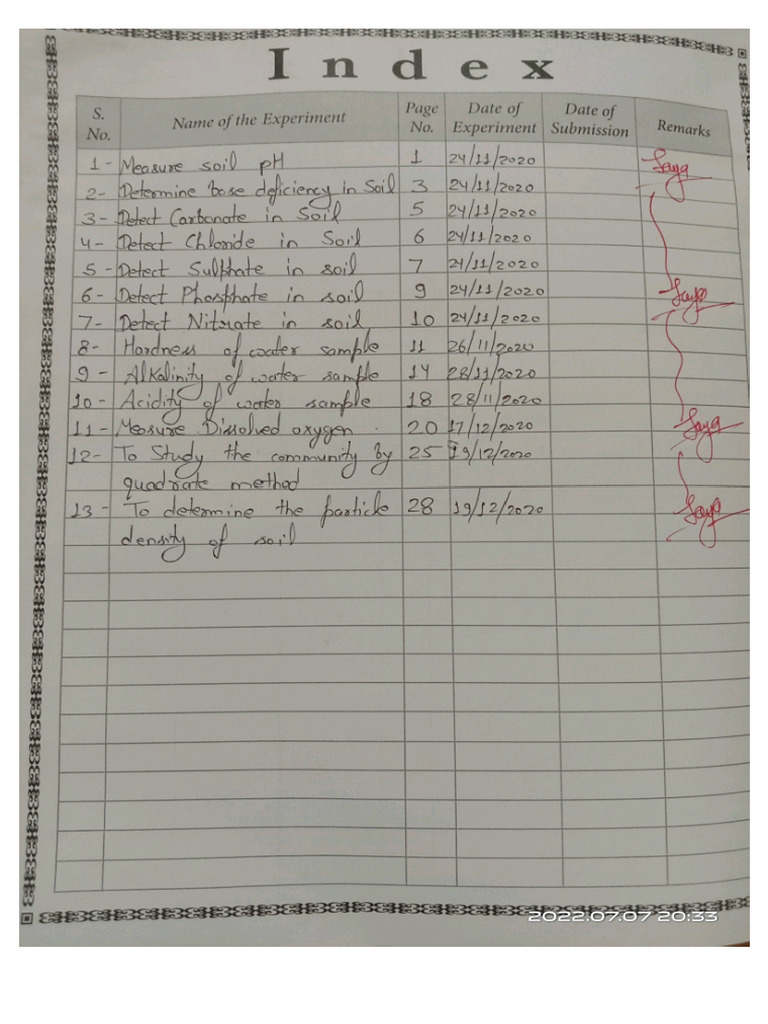 Index
S. No. Name of the Experiment Page No. Date of Experiment Date of Submission Remarks
1- Measure soil pH 1 24/11/2020
2- Determine base deficiency in Soil 3 24/11/2020
3- Detect Carbonate in Soil 5 24/11/2020
4- Detect Chloride in Soil 6 24/11/2020
5- Detect Sulphate in soil 7 24/11/2020
6- Detect Phosphate in soil 9 24/11/2020
7- Detect Nitrate in soil 10 24/11/2020
8- Hardness of water sample 11 26/11/2020
9- Alkalinity of water sample 14 28/11/2020
10- Acidity of water sample 18 28/11/2020
11- Measure Dissolved oxygen. 20 17/12/2020
12- To Study the community by 25 19/12/2020
quadrate method
13- To determine the particle 28 19/12/2020
density of soil
2022.07.07 20:33